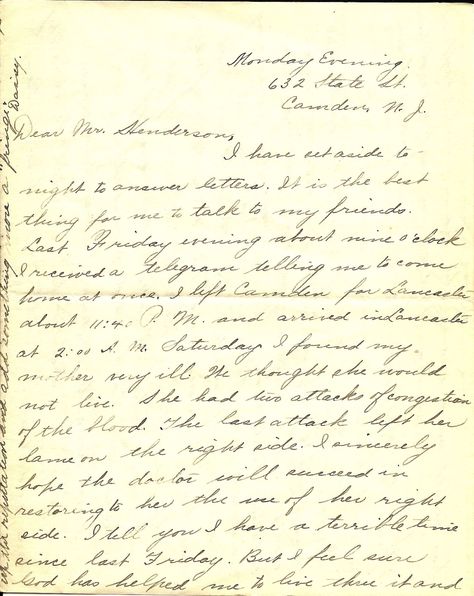 Monday Evening.
632 State St.
Camden, N. J.
Dear Mr. Henderson,
I have set aside to-
night to answer letters. It is the best
thing for me to talk to my friends.
Last Friday evening about nine o'clock
I received a telegram telling me to come
home at once. I left Camden for Lancaster
about 11:40 P. M. and arrived in Lancaster
at 2:00 A. M. Saturday. I found my
mother very ill. We thought she would
not live. She had two attacks of congestion
of the blood. The last attack left her
lame on the right side. I sincerely
hope the doctor will succeed in
restoring to her the use of her right
side. I tell you I have a terrible time
since last Friday. But I feel sure
God has helped me to live thru it and
Daisy.